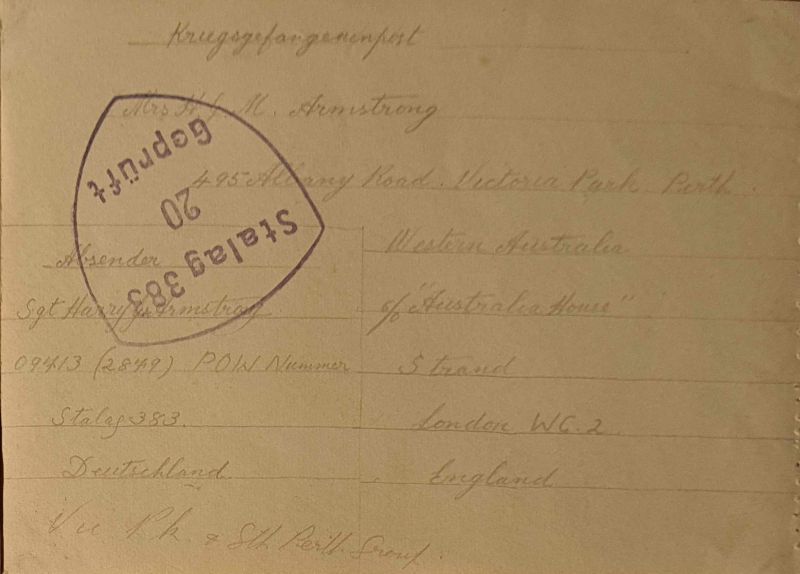 Kriegsgefangenenpost
Mrs H. J. M. Armstrong
495 Albany Road. Victoria Park. Perth.
Western Australia
c/o "Australia House"
Strand
London WC.2.
England
Absender
Sgt Harry Armstrong.
09413 (2849) POW Nummer
Stalag 383.
Deutschland.
Vic Pk & Sth Perth Group.
Stalag 383
20
Geprüft